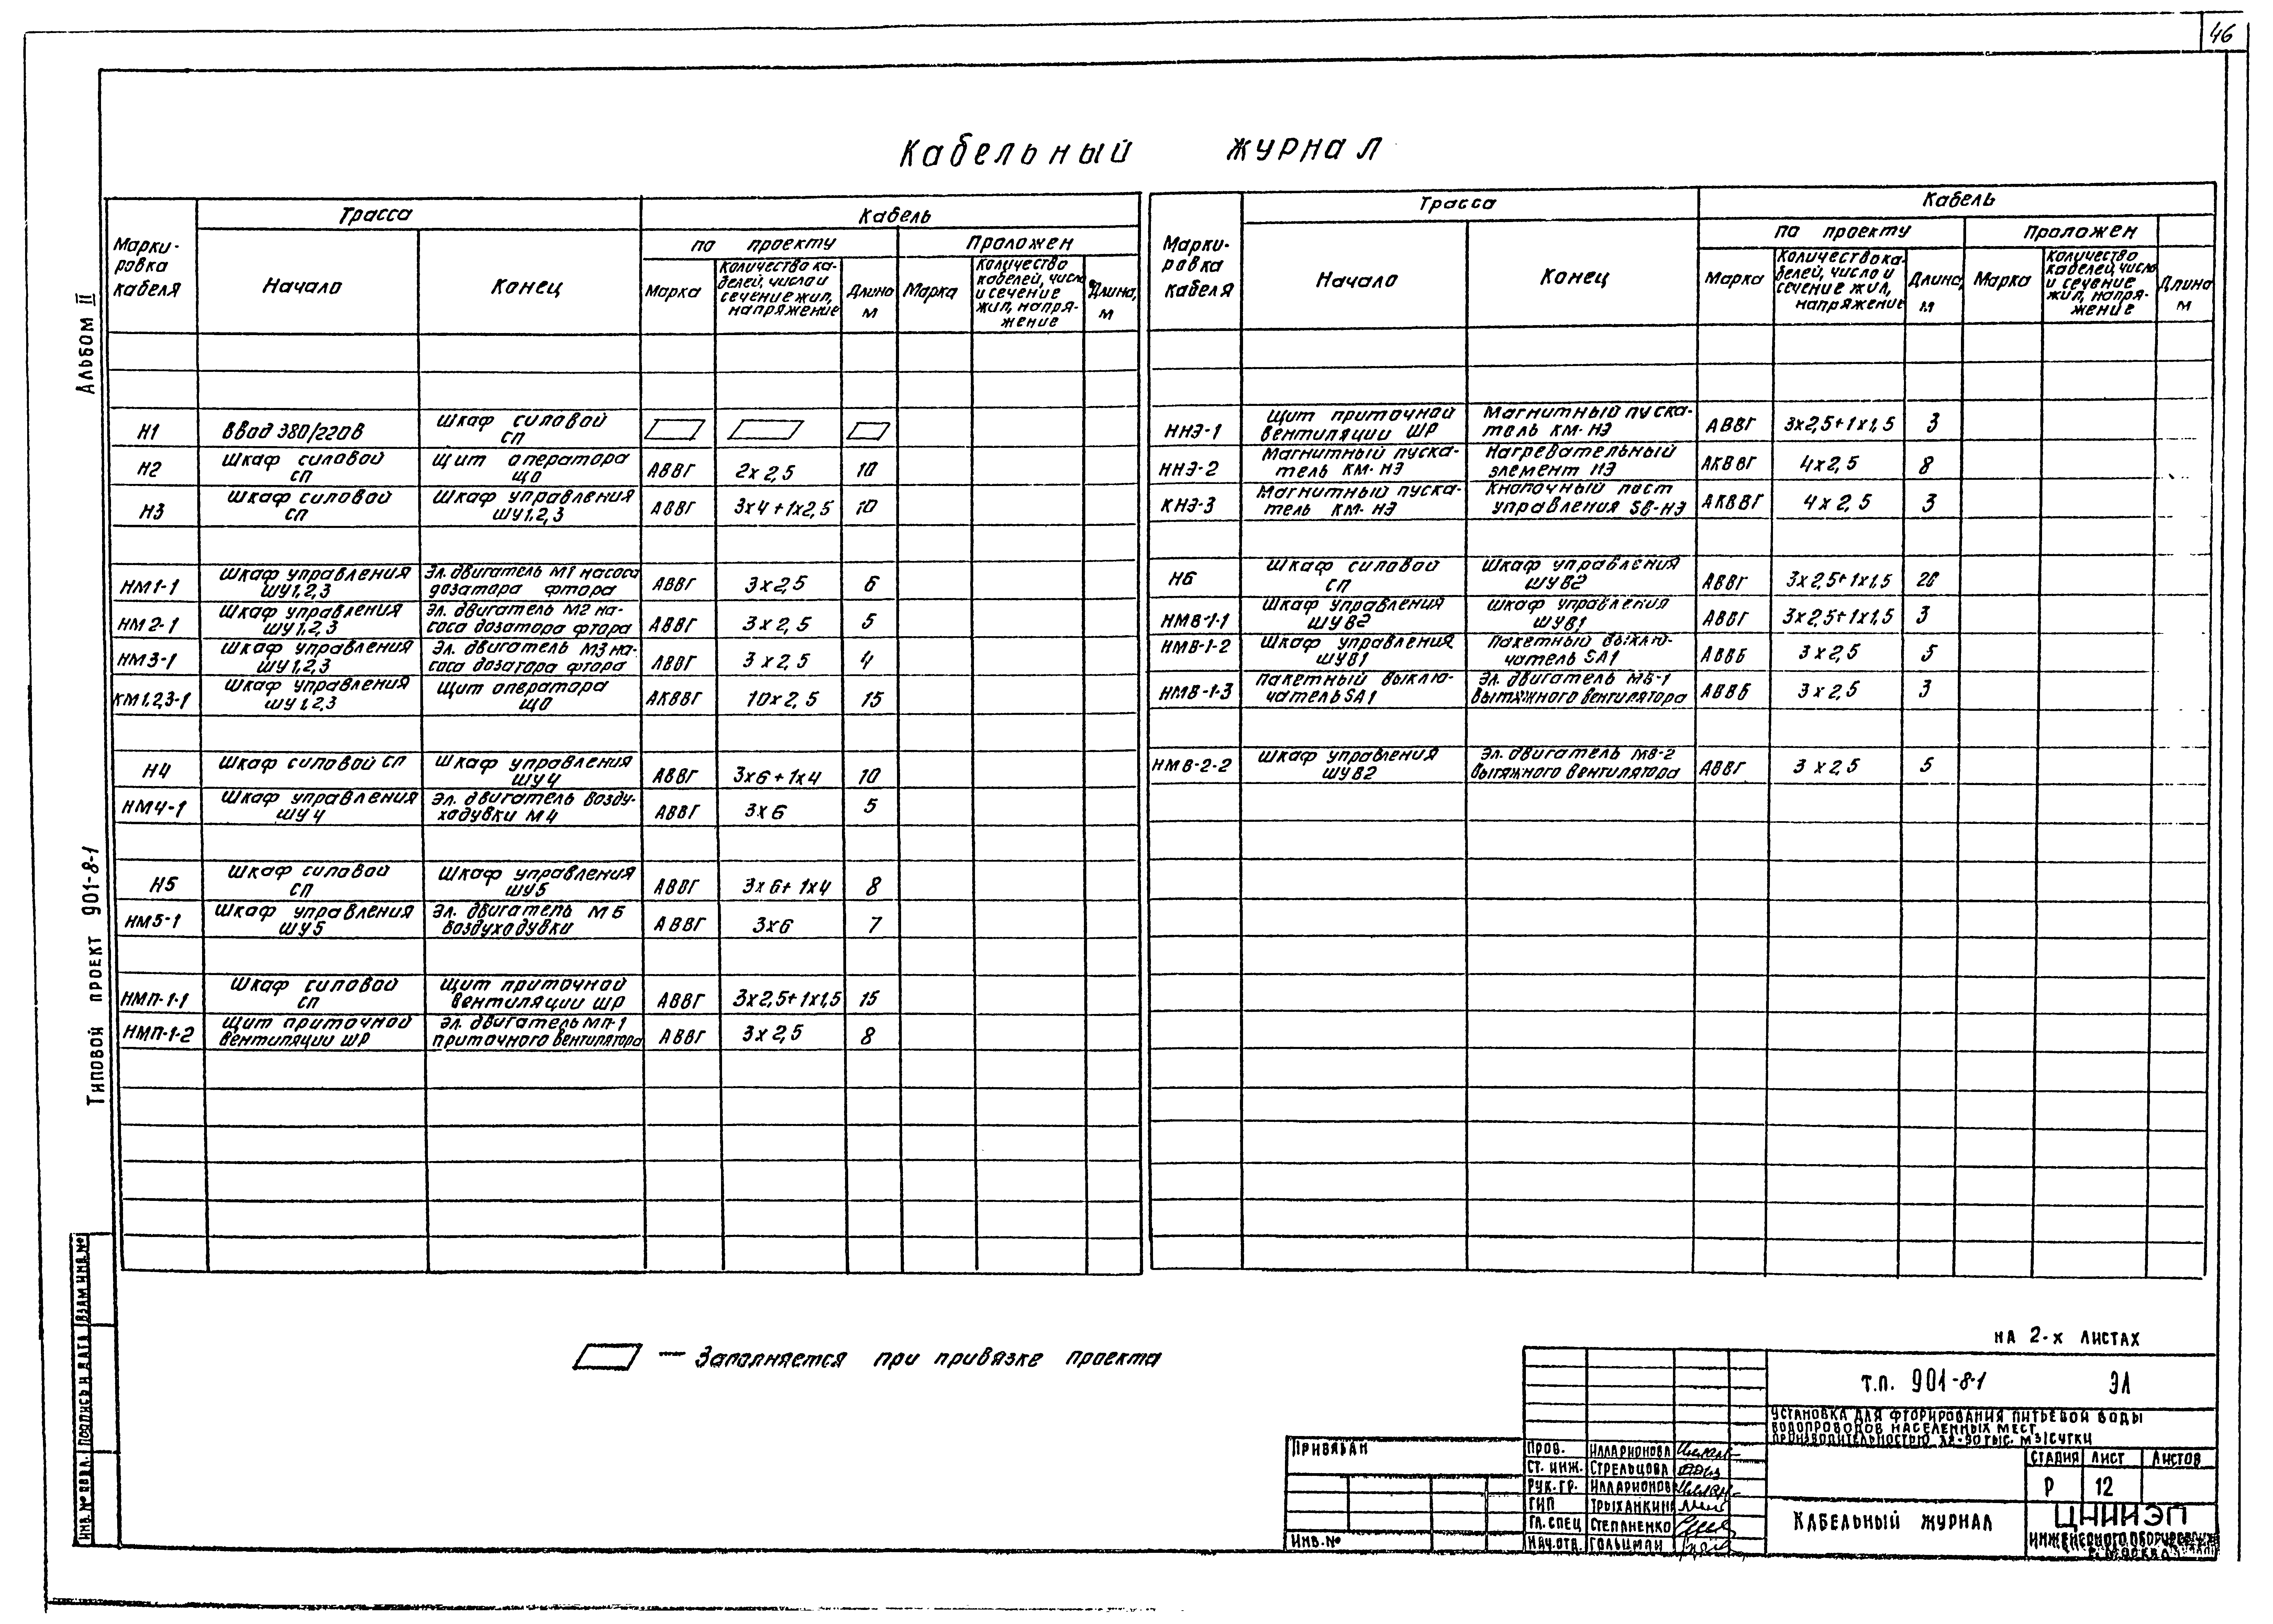 46
Альбом II
Типовой проект 901-8-1
Кабельный журнал
Марки-
ровка
кабеля
Трасса
Кабель
Начало
Конец
по проекту
Проложен
Марка
Количество ка-
белей, число и
сечение жил,
напряжение
Длина
м
Марка
Количество
кабелей, число
и сечение
жил, напря-
жение
Длина,
м
Н1 Ввод 380/220В Шкаф силовой СП
Н2 Шкаф силовой СП Щит оператора ЩО АВВГ 2х2,5 10
Н3 Шкаф силовой СП Шкаф управления ШУ1,2,3 АВВГ 3х4+1х2,5 10
НМ1-1 Шкаф управления ШУ1,2,3 Эл. двигатель М1 насоса дозатора фтора АВВГ 3х2,5 6
НМ2-1 Шкаф управления ШУ1,2,3 Эл. двигатель М2 на- соса дозатора фтора АВВГ 3х2,5 5
НМ3-1 Шкаф управления ШУ1,2,3 Эл. двигатель М3 на- соса дозатора фтора АВВГ 3х2,5 4
КМ1,2,3-1 Шкаф управления ШУ1,2,3 Щит оператора ЩО АКВВГ 10х2,5 15
Н4 Шкаф силовой СП Шкаф управления ШУ4 АВВГ 3х6+1х4 10
НМ4-1 Шкаф управления ШУ4 Эл. двигатель возду- ходувки М4 АВВГ 3х6 5
Н5 Шкаф силовой СП Шкаф управления ШУ5 АВВГ 3х6+1х4 8
НМ5-1 Шкаф управления ШУ5 Эл. двигатель М5 воздуходувки АВВГ 3х6 7
НМП-1-1 Шкаф силовой СП Щит приточной вентиляции ШР АВВГ 3х2,5+1х1,5 15
НМП-1-2 Щит приточной вентиляции ШР Эл. двигатель МП-1 приточного вентилятора АВВГ 3х2,5 8
Марки-
ровка
кабеля
Трасса
Кабель
Начало
Конец
по проекту
Проложен
Марка
Количество ка-
белей, число и
сечение жил,
напряжение
Длина,
м
Марка
Количество
кабелей, число
и сечение
жил, напря-
жение
Длина
м
ННЭ-1 Щит приточной вентиляции ШР Магнитный пуска- тель КМ-НЭ АВВГ 3х2,5+1х1,5 3
ННЭ-2 Магнитный пуска- тель КМ-НЭ Нагревательный элемент НЭ АКВВГ 4х2,5 8
КНЭ-3 Магнитный пуска- тель КМ-НЭ Кнопочный пост управления SB-НЭ АКВВГ 4х2,5 3
Н6 Шкаф силовой СП Шкаф управления ШУВ2 АВВГ 3х2,5+1х1,5
НМВ-1-1 Шкаф управления ШУВ2 Шкаф управления ШУВ1 АВВГ 3х2,5+1х1,5 3
НМВ-1-2 Шкаф управления ШУВ1 Пакетный выклю- чатель SA1 АВВБ 3х2,5 5
НМВ-1-3 Пакетный выклю- чатель SA1 Эл. двигатель МВ-1 вытяжного вентилятора АВВБ 3х2,5 3
НМВ-2-2 Шкаф управления ШУВ2 Эл. двигатель МВ-2 вытяжного вентилятора АВВГ 3х2,5 5
— Заполняется при привязке проекта
на 2-х листах
Т.П. 901-8-1 ЭЛ
Установка для фторирования питьевой воды
водопроводов населенных мест
производительностью тыс. м3/сутки
Привязан
Инв. №
Пров. Илларионова
Ст. инж. Стрельцова
Рук. гр. Илларионова
ГИП Трыханкина
Гл. спец Степаненко
Нач. отд. Гольцман
Стадия Лист Листов
Р 12
Кабельный журнал
ЦНИИЭП
инженерного оборудования
г. Москва
Инв. № подл. Подпись и дата Взам инв. №